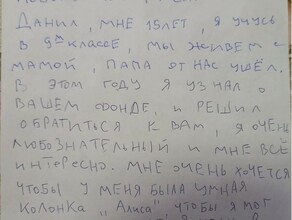 Данил, мне 15лет, я учусь
в 9ом классе, мы живем с
мамой, папа от нас ушёл.
В этом году я узнал о
вашем фонде, и решил
обратиться к вам, я очень
любознательный и мне всё
интересно. Мне очень хочется
чтобы у меня была умная
колонка „Алиса" чтобы я мог